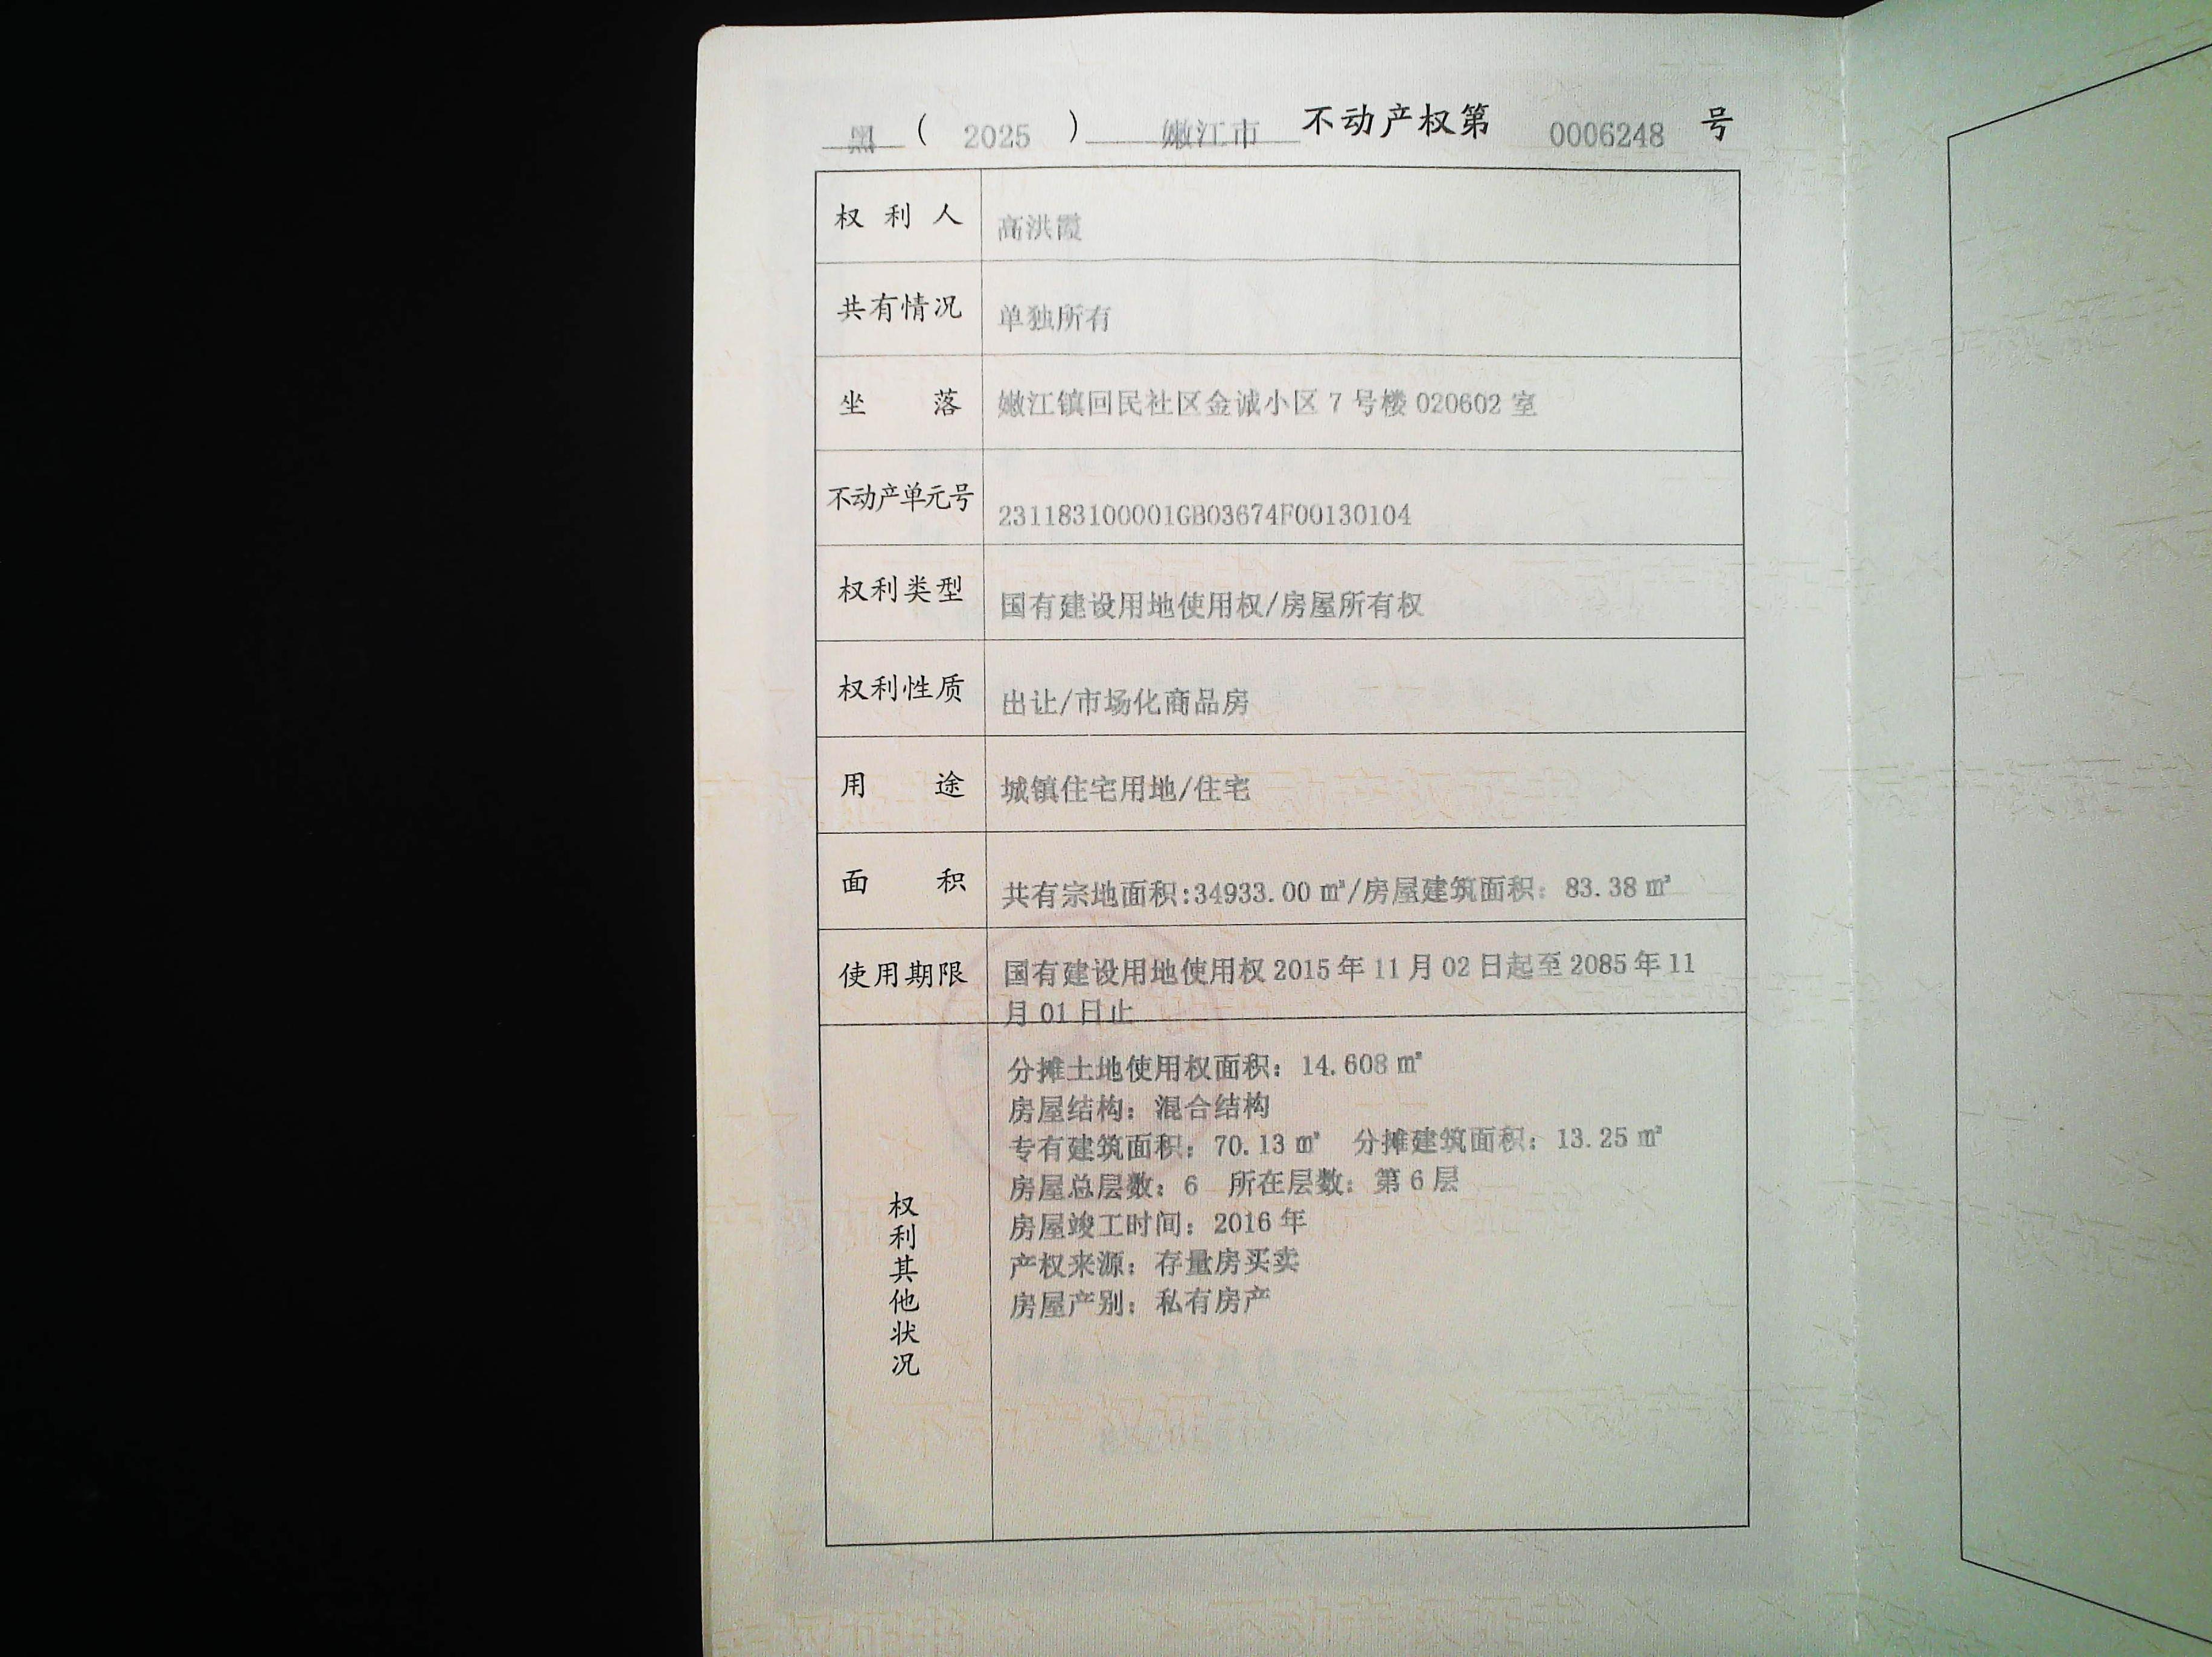 黑 ( 2025 ) 嫩江市 不动产权第 0006248 号
权利人 高洪霞
共有情况 单独所有
坐落 嫩江镇回民社区金诚小区 7 号楼 020602 室
不动产单元号 231183100001GB03674F00130104
权利类型 国有建设用地使用权/房屋所有权
权利性质 出让/市场化商品房
用途 城镇住宅用地/住宅
面积 共有宗地面积:34933.00 ㎡/房屋建筑面积: 83.38 ㎡
使用期限 国有建设用地使用权 2015 年 11 月 02 日起至 2085 年 11
月 01 日止
权利其他状况
分摊土地使用权面积: 14.608 ㎡
房屋结构: 混合结构
专有建筑面积: 70.13 ㎡ 分摊建筑面积: 13.25 ㎡
房屋总层数: 6 所在层数: 第 6 层
房屋竣工时间: 2016 年
产权来源: 存量房买卖
房屋产别: 私有房产